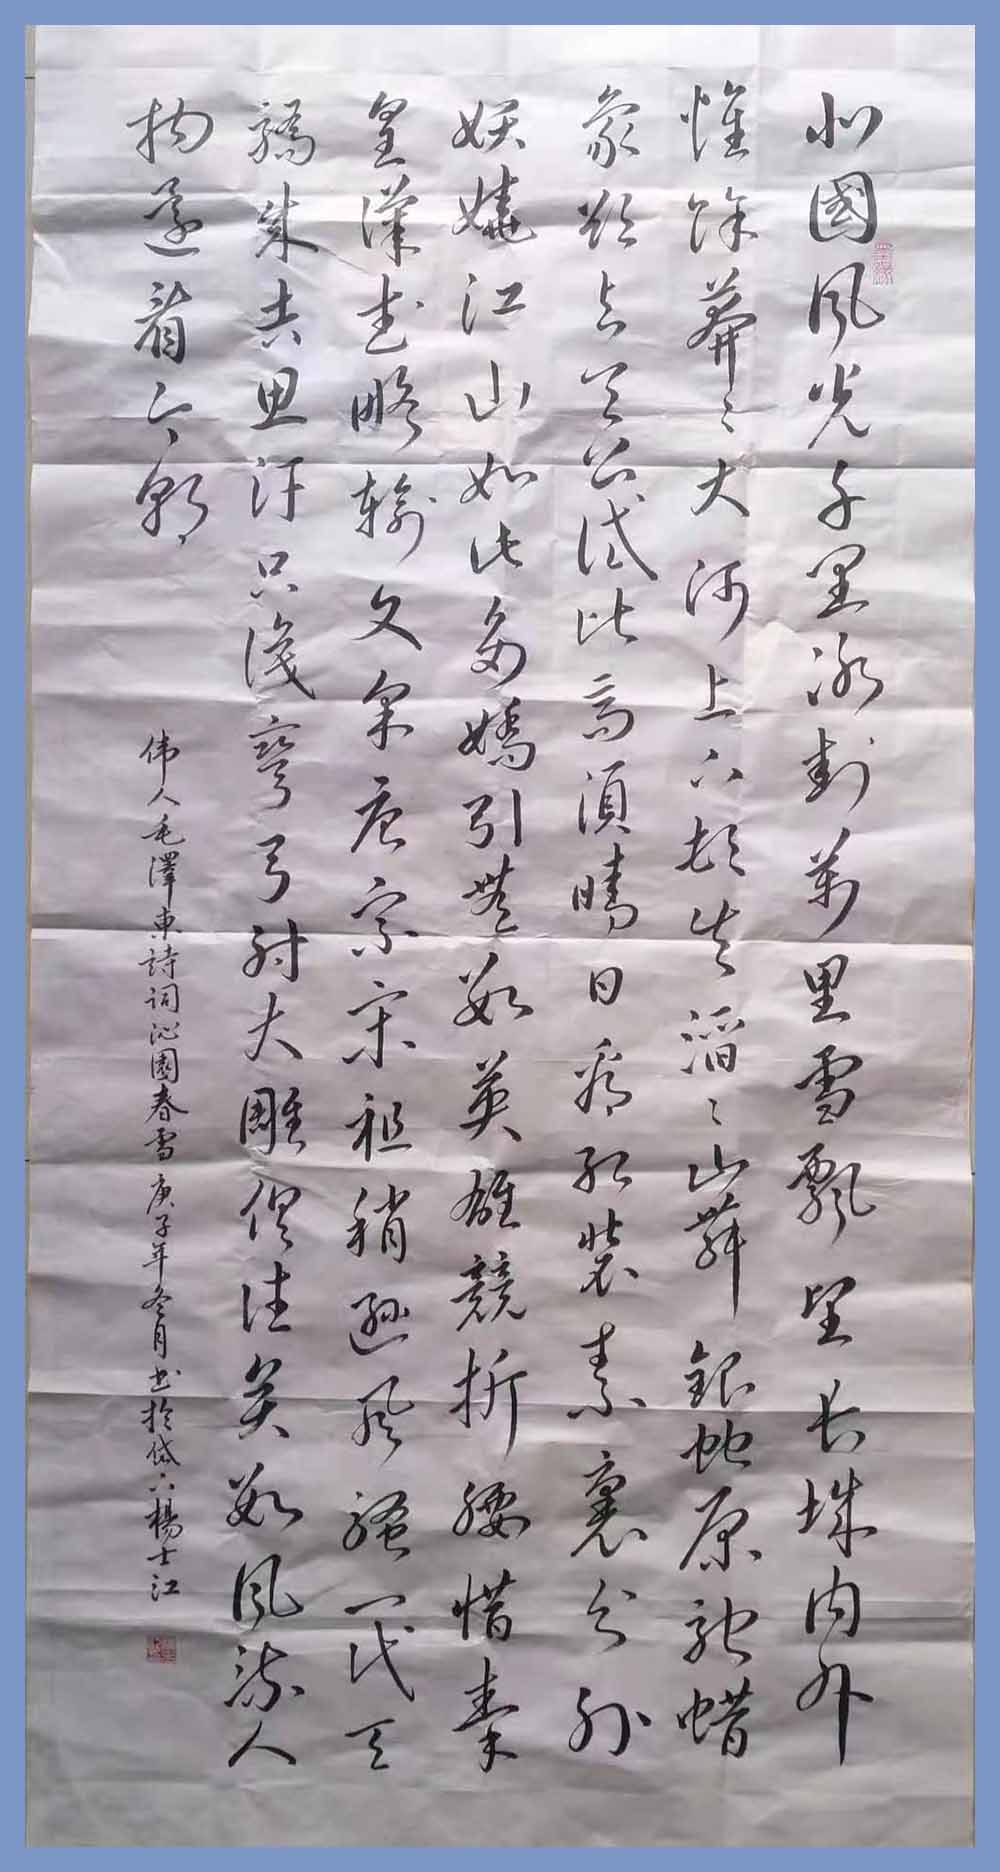 北國風光千里冰封萬里雪飄望長城内外
惟餘莽々大河上下頓失滔々山舞銀蛇原馳蜡
象欲与天公试比高須晴日看红装素裹分外
妖娆江山如此多嬌引無數英雄競折腰惜秦
皇漢武略输文采唐宗宋祖稍遜風騷一代天
驕成吉思汗只識彎弓射大雕俱往矣數風流人
物還看今朝
伟人毛澤東詩詞沁園春雪庚子年冬月书於岱下楊士江